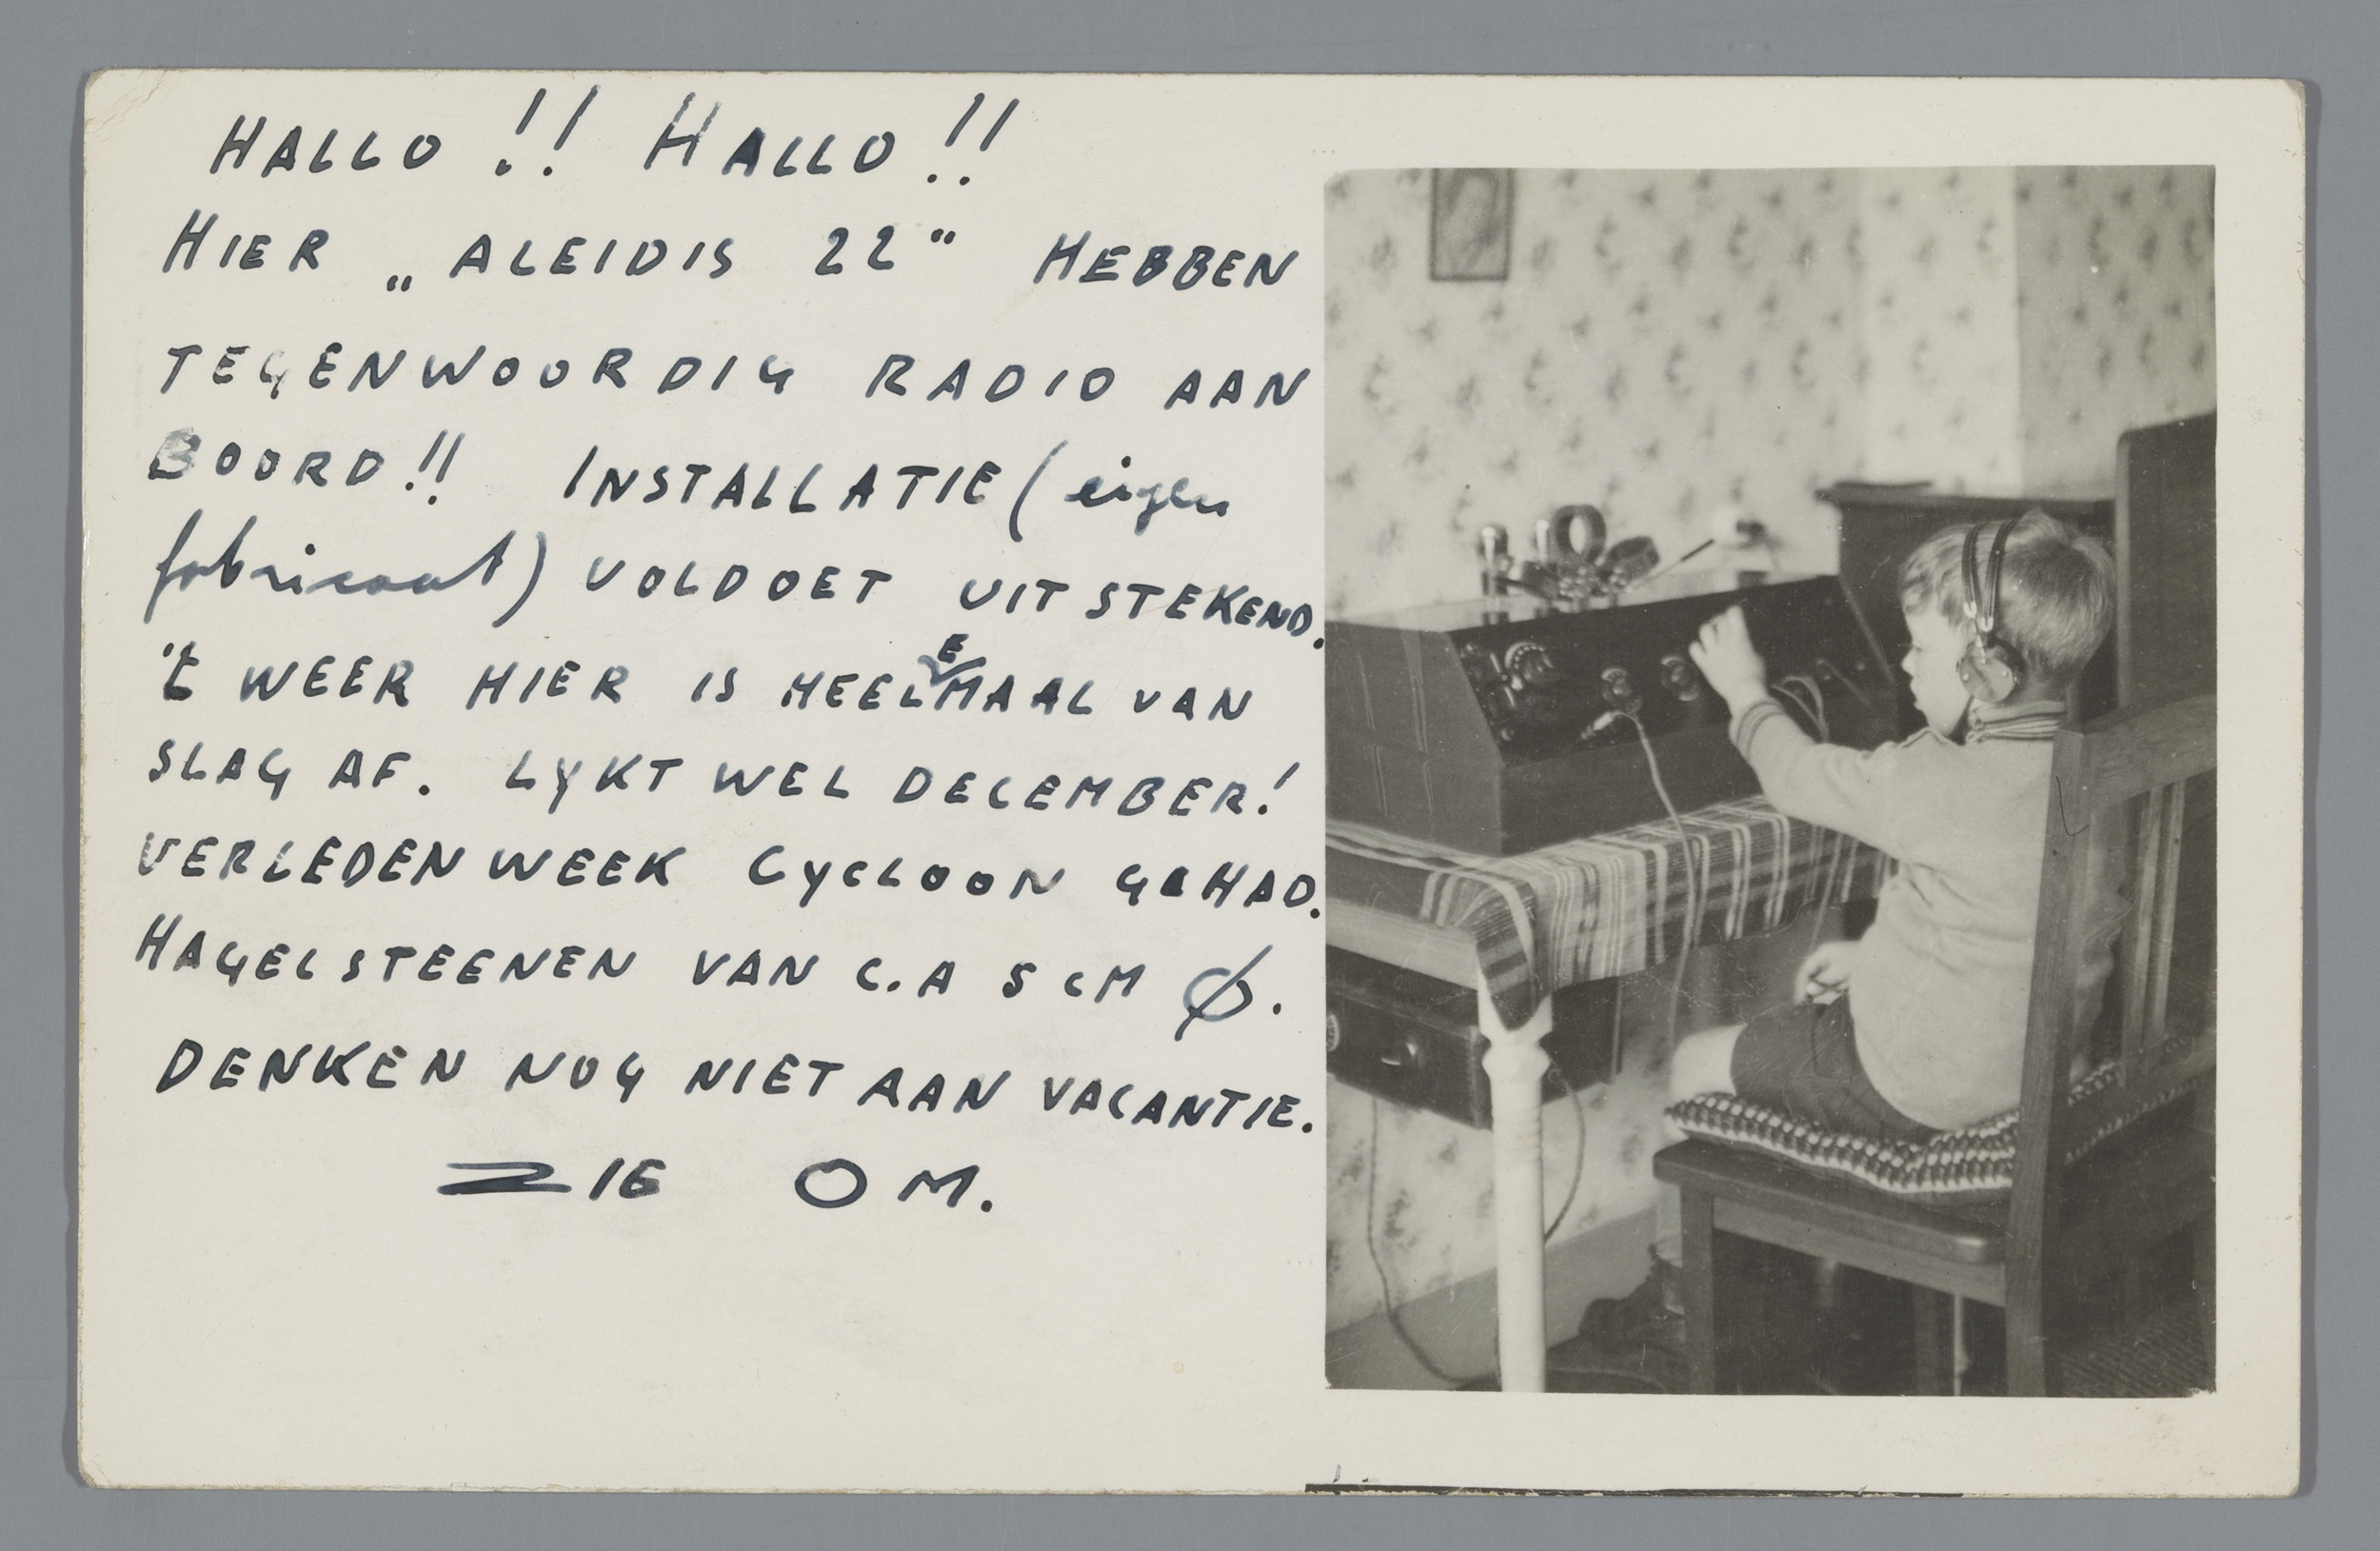 HALLO !! HALLO !!
HIER „ALEIDIS 22“ HEBBEN
TEGENWOORDIG RADIO AAN
BOORD!! INSTALLATIE (eigen
fabricaat) VOLDOET UITSTEKEND.
't WEER HIER IS HEELEMAAL VAN
SLAG AF. LYKT WEL DECEMBER!
VERLEDEN WEEK CYCLOON GEHAD.
HAGELSTEENEN VAN C.A 5 CM Ø.
DENKEN NOG NIET AAN VACANTIE.
ZIE OM.